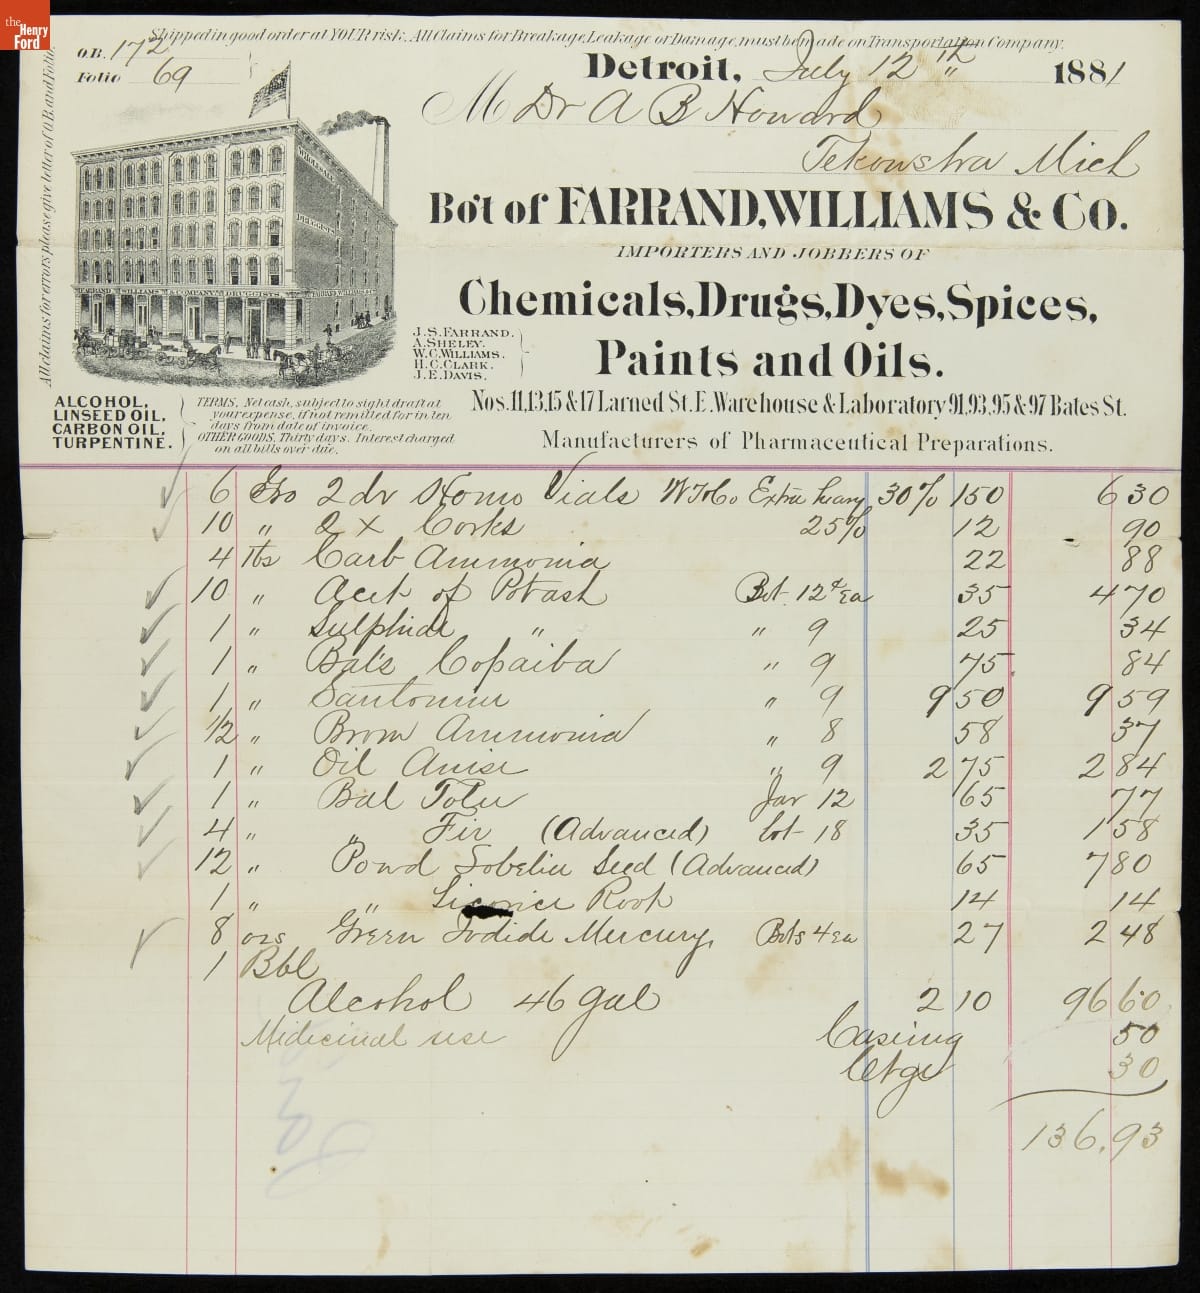 the Henry Ford
Shipped in good order at YOUR risk. All Claims for Breakage, Leakage or Damage, must be made on Transportation Company.
All claims for errors please give letter of O.B. and Folio.
O.B. 172
Folio 69
Detroit, July 12th 1881
M Dr A B Howard
Tekonsha Mich
Bo't of FARRAND, WILLIAMS & Co.
IMPORTERS AND JOBBERS OF
Chemicals, Drugs, Dyes, Spices,
Paints and Oils.
WHOLESALE
DRUGGISTS
FARRAND WILLIAMS & COMPANY DRUGGISTS
FARRAND WILLIAMS & Co
J. S. FARRAND.
A. SHELEY.
W. C. WILLIAMS.
H. C. CLARK.
J. E. DAVIS.
ALCOHOL,
LINSEED OIL,
CARBON OIL,
TURPENTINE.
TERMS, Net cash, subject to sight draft at
your expense, if not remitted for in ten
days from date of invoice.
OTHER GOODS, Thirty days. Interest charged
on all bills over due.
Nos. 11, 13, 15 & 17 Larned St. E. Warehouse & Laboratory 91, 93, 95 & 97 Bates St.
Manufacturers of Pharmaceutical Preparations.
6 Gro 2 dr Homo Vials W T & Co Extra heavy 30% 150 6 30
10 " 2 X Corks 25% 12 90
4 lbs Carb Ammonia 22 88
10 " Acet of Potash Bot. 12¢ ea 35 4 70
1 " Sulphide " " 9 25 34
1 " Bals Copaiba " 9 75 84
1 " Santonin " 9 9 50 9 59
1/2 " Brom Ammonia " 8 58 37
1 " Oil Anise " 9 2 75 2 84
1 " Bal Tolu Jar 12 65 77
4 " " Fir (Advanced) bot 18 35 1 58
12 " Powd Lobelia Seed (Advanced) 65 7 80
1 " " Licorice Root 14 14
8 ozs Green Iodide Mercury, Bots 4 ea 27 2 48
1 Bbl
Alcohol 46 gal 2 10 96 60
Medicinal use Caseing 50
Ctge 30
136.93